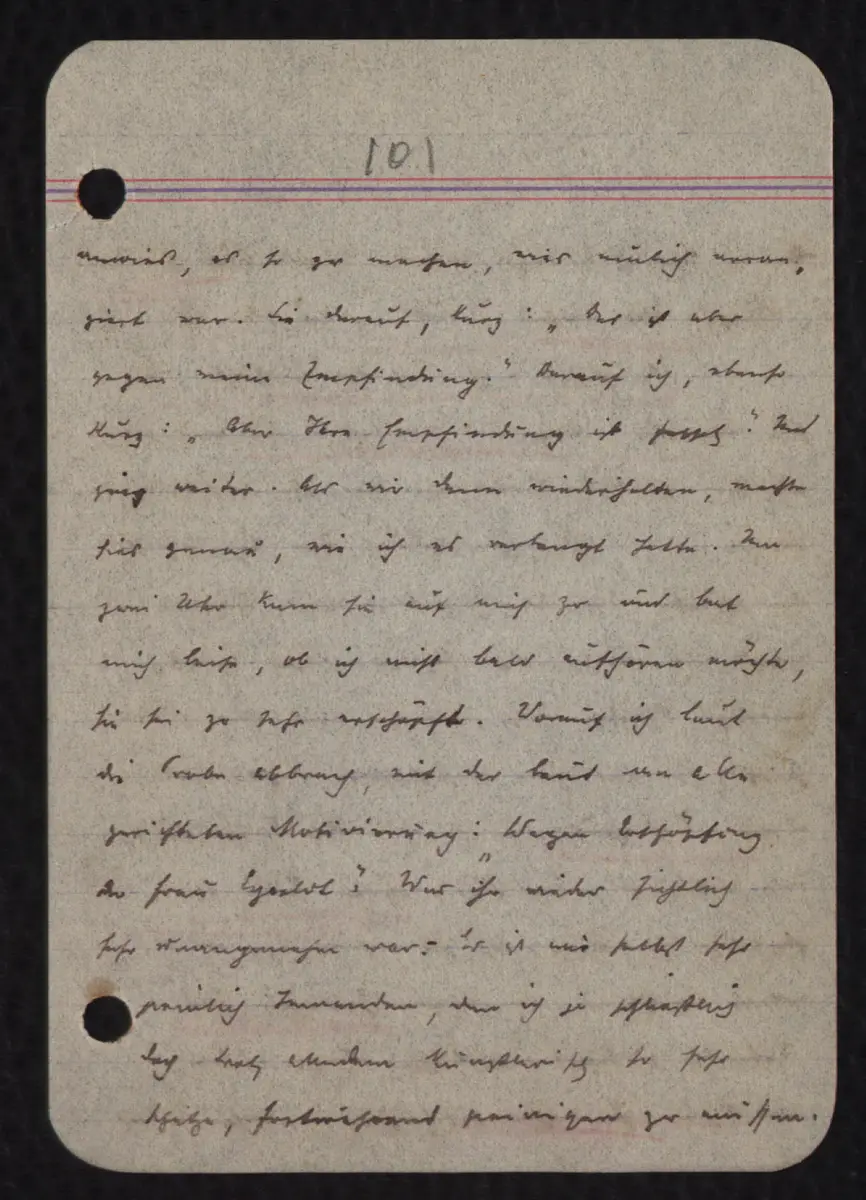 101
anwies, es so zu machen, wie neulich arran-
giert war. Sie darauf, kurz: „Das ist aber
gegen meine Empfindung." Darauf ich, ebenso
kurz: „Aber Ihre Empfindung ist falsch." Und
ging weiter. Als wir dann wiederholten, machte
sies genau, wie ich es verlangt hatte. Um
zwei Uhr kam sie auf mich zu und bat
mich leise, ob ich nicht bald aufhören möchte,
sie sei zu sehr erschöpft. Worauf ich laut
die Probe abbrach, mit der laut an alle
gerichteten Motivierung: „Wegen Erschöpfung
der Frau Eysoldt". Was ihr wieder sichtlich
sehr unangenehm war. Es ist mir selbst sehr
peinlich Jemanden, den ich ja schließlich
doch trotz Alledem künstlerisch so sehr
schätze, fortwährend peinigen zu müssen.